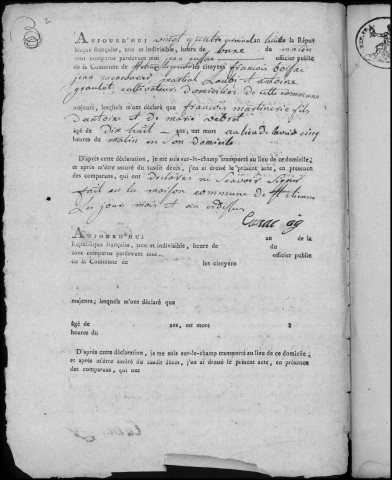 2
AUJOURD'HUI vingt quatre germinal an huit de la République
française, une et indivisible, heure de onze du matin
sont comparus pardevant moi officier public
de la Commune de les citoyens françois
jean martial et antoine
cultivateurs domiciliés de cette commune
majeurs, lesquels m'ont déclaré que françois martinerie fils
d'antoine et de marie
âgé de Dix huit ans, est mort cinq
heures du matin en son Domicile
D'après cette déclaration, je me suis sur-le-champ transporté au lieu de ce domicile;
et après m'être assuré du susdit décès, j'en ai dressé le présent acte, en présence
des comparans, qui ont déclaré ne sçavoir signer
fait en la maison commune de St etienne
Les jour mois et an
AUJOURD'HUI an de la
République française, une et indivisible, heure de du
sont comparus pardevant moi officier public
de la Commune de les citoyens
majeurs, lesquels m'ont déclaré que
âgé de ans, est mort à
heures du
D'après cette déclaration, je me suis sur-le-champ transporté au lieu de ce domicile;
et après m'être assuré du susdit décès, j'en ai dressé le présent acte, en présence
des comparans, qui ont